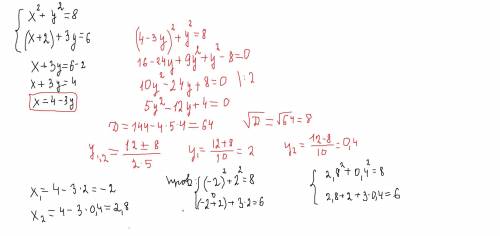 x² + y² = 8
(x+2) + 3y = 6
x + 3y = 6-2
x + 3y = 4
x = 4-3y
(4-3y)² + y² = 8
16 - 24y + 9y² + y² - 8 = 0
10y² - 24y + 8 = 0 | : 2
5y² - 12y + 4 = 0
D = 144 - 4·5·4 = 64 √D = √64 = 8
y₁,₂ = (12 ± 8)/(2·5) y₁ = (12+8)/10 = 2 y₂ = (12-8)/10 = 0,4
x₁ = 4 - 3·2 = -2
x₂ = 4 - 3·0,4 = 2,8
пров
(-2)² + 2² = 8
(-2+2) + 3·2 = 6
2,8² + 0,4² = 8
2,8 + 2 + 3·0,4 = 6